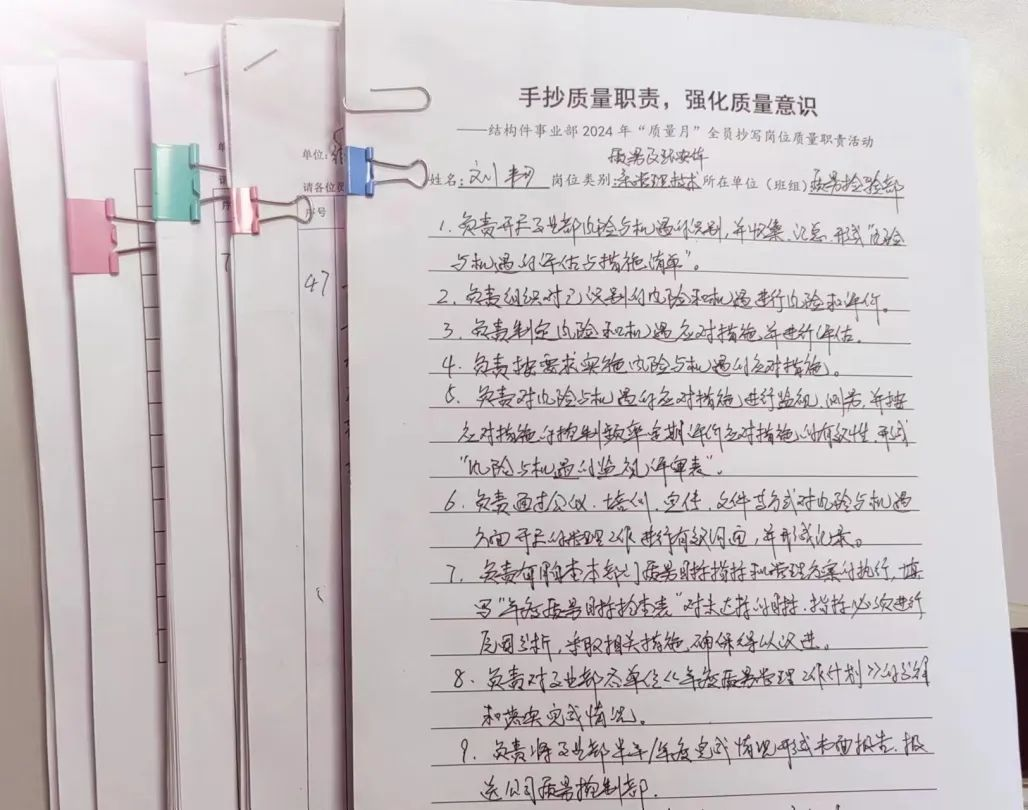 手抄质量职责，强化质量意识
——结构件事业部2024年“质量月”全员抄写岗位质量职责活动
质量及环安体
姓名：刘 岗位类别：系管理技术 所在单位（班组）质量检验部
1. 负责开展事业部风险与机遇的识别，并收集、汇总，形成“风险
与机遇的评估与措施清单”。
2. 负责组织对已识别的风险和机遇进行风险和评价。
3. 负责制定风险和机遇应对措施，并进行评估。
4. 负责按要求实施风险与机遇的应对措施。
5. 负责对风险与机遇的应对措施进行监视、测量，并按
应对措施的控制频率定期评价应对措施的有效性，形成
“风险与机遇的监视评审表”。
6. 负责通过会议、培训、宣传、文件等方式对风险与机遇
方面开展的管理工作进行有效沟通，并形成记录。
7. 负责每月检查本部门质量目标指标和管理方案的执行，填
写“年度质量目标检查表”对未达标的目标、指标必须进行
原因分析，采取相关措施，确保得以改进。
8. 负责对事业部各单位《年度质量管理工作计划》的分解
和落实完成情况。
9. 负责将事业部半年/年度完成情况形成书面报告，报
送公司质量控制部.
单位：
请各位
序号
47